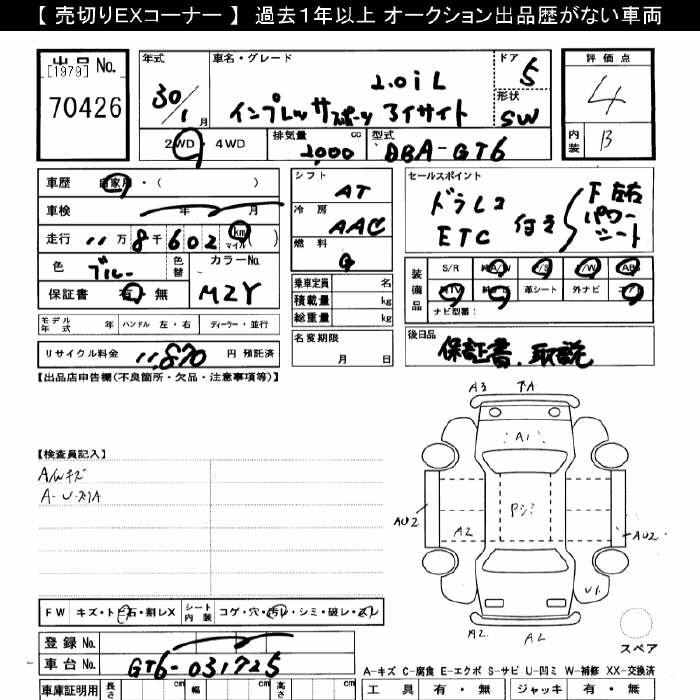 【 売切りEXコーナー 】 過去1年以上 オークション出品歴がない車両
出品 No.
[1979]
70426
年式 30/1月
車名・グレード 2.0i L
インプレッサスポーツ アイサイト
ドア 5
形状 SW
2WD ・ 4WD
排気量 2000 cc
型式 DBA-GT6
評価点 4
内装 B
車歴 自家用・( )
車検 年 月
走行 万 8千602 km マイル ( )
色 ブルー 色替
カラーNo. MZY
保証書 有・無
シフト AT
冷房 AAC
燃料 G
乗車定員 名
積載量 kg
総重量 kg
名変期限 月 日
セールスポイント
ドラレコ
ETC 付き
下 左右
パワー
シート
装備品
S/R 純A/W P/S P/W ABS
純TV 革シート 外ナビ エアB
ナビ型番:
モデル年式 年 ハンドル 左・右 ディーラー・並行
リサイクル料金 11,870 円 預託済
後日品 保証書、取説
【出品店申告欄(不良箇所・欠品・注意事項等)】
【検査員記入】
A/Wキズ
A-U-スリA
A3 TA
A1
Pシミ
AU2
A2
AU2
U1
A2 A2
スペア
FW キズ・トビ石・割レX シート内装 コゲ・穴・汚レ・シミ・破レ・スレ
登録 No.
車台 No. GT6-031725
A-キズ C-腐食 E-エクボ S-サビ U-凹ミ W-補修 XX-交換済
車庫証明用 長さ cm 幅 cm 高さ cm
工具 有・無 ジャッキ 有・無